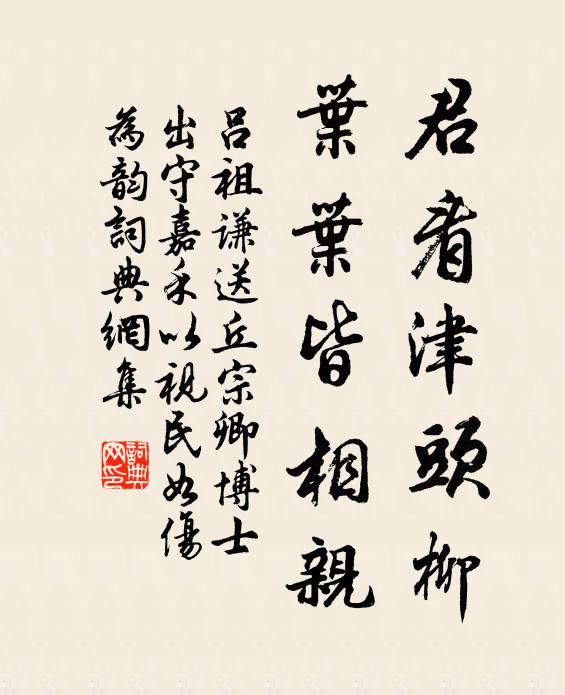 君看津頭柳
葉葉皆相親
吕祖谦送丘宗卿博士
出守嘉禾以視民如傷
為韵詞典網集
詞典
网印